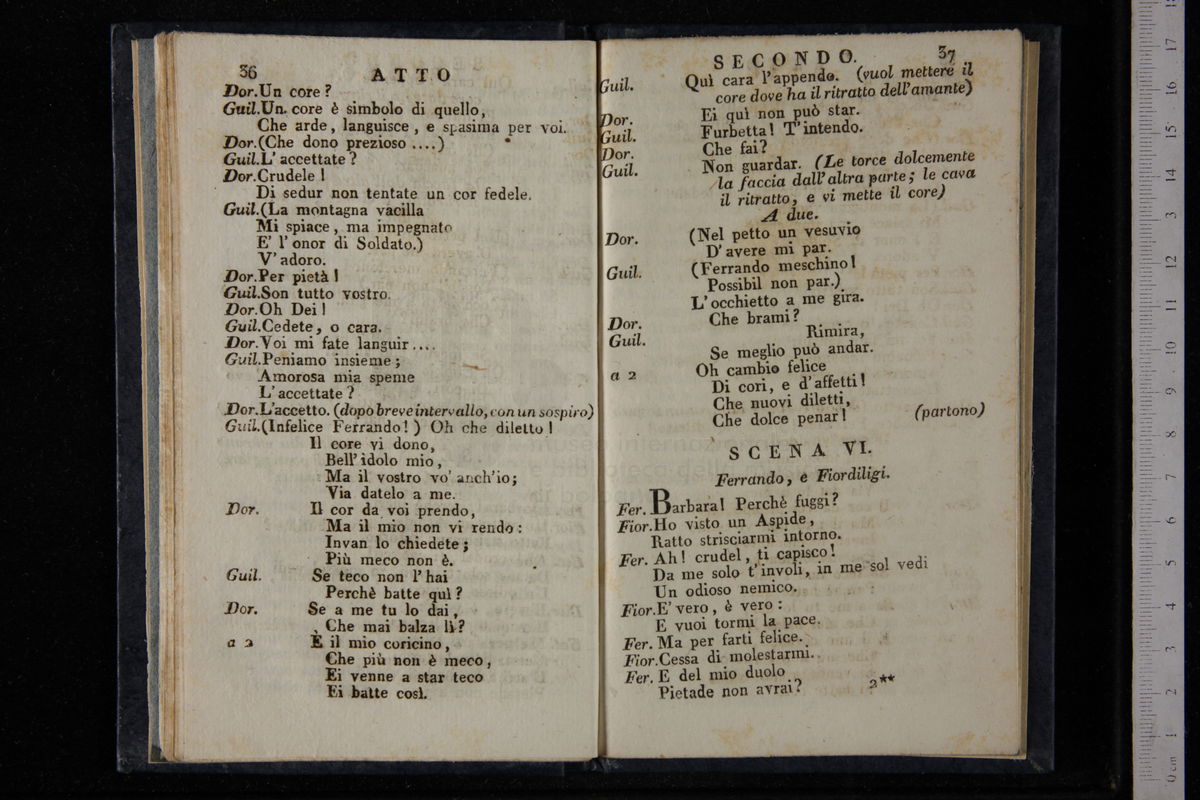 36
ATTO
Dor.Un core?
Guil.Un core è simbolo di quello,
Che arde, languisce, e spasima per voi.
Dor.(Che dono prezioso ....)
Guil.L' accettate?
Dor.Crudele!
Di sedur non tentate un cor fedele.
Guil.(La montagna vacilla
Mi spiace, ma impegnato
E' l'onor di Soldato.)
V' adoro.
Dor.Per pietà!
Guil.Son tutto vostro.
Dor.Oh Dei!
Guil.Cedete, o cara.
Dor.Voi mi fate languir....
Guil.Peniamo insieme;
Amorosa mia speme
L' accettate?
Dor.L'accetto. (dopo breve intervallo, con un sospiro)
Guil.(Infelice Ferrando!) Oh che diletto!
Il core vi dono,
Bell' idolo mio,
Ma il vostro vo' anch'io;
Via datelo a me.
Dor. Il cor da voi prendo,
Ma il mio non vi rendo:
Invan lo chiedete;
Più meco non è.
Guil. Se teco non l'hai
Perchè batte quì?
Dor. Se a me tu lo dai,
Che mai balza lì?
a 2 È il mio coricino,
Che più non è meco,
Ei venne a star teco
Ei batte così.
SECONDO.
37
Guil. Quì cara l'appendo. (vuol mettere il
core dove ha il ritratto dell'amante)
Dor. Ei quì non può star.
Guil. Furbetta! T'intendo.
Dor. Che fai?
Guil. Non guardar. (Le torce dolcemente
la faccia dall'altra parte; le cava
il ritratto, e vi mette il core)
A due.
Dor. (Nel petto un vesuvio
D'avere mi par.
Guil. (Ferrando meschino!
Possibil non par.)
L'occhietto a me gira.
Dor. Che brami?
Guil. Rimira,
Se meglio può andar.
a 2 Oh cambio felice
Di cori, e d'affetti!
Che nuovi diletti,
Che dolce penar! (partono)
SCENA VI.
Ferrando, e Fiordiligi.
Fer. Barbara! Perchè fuggi?
Fior.Ho visto un Aspide,
Ratto strisciarmi intorno.
Fer. Ah! crudel, ti capisco!
Da me solo t'involi, in me sol vedi
Un odioso nemico.
Fior.E' vero, è vero:
E vuoi tormi la pace.
Fer. Ma per farti felice.
Fior.Cessa di molestarmi.
Fer. E del mio duolo
Pietade non avrai?
2**